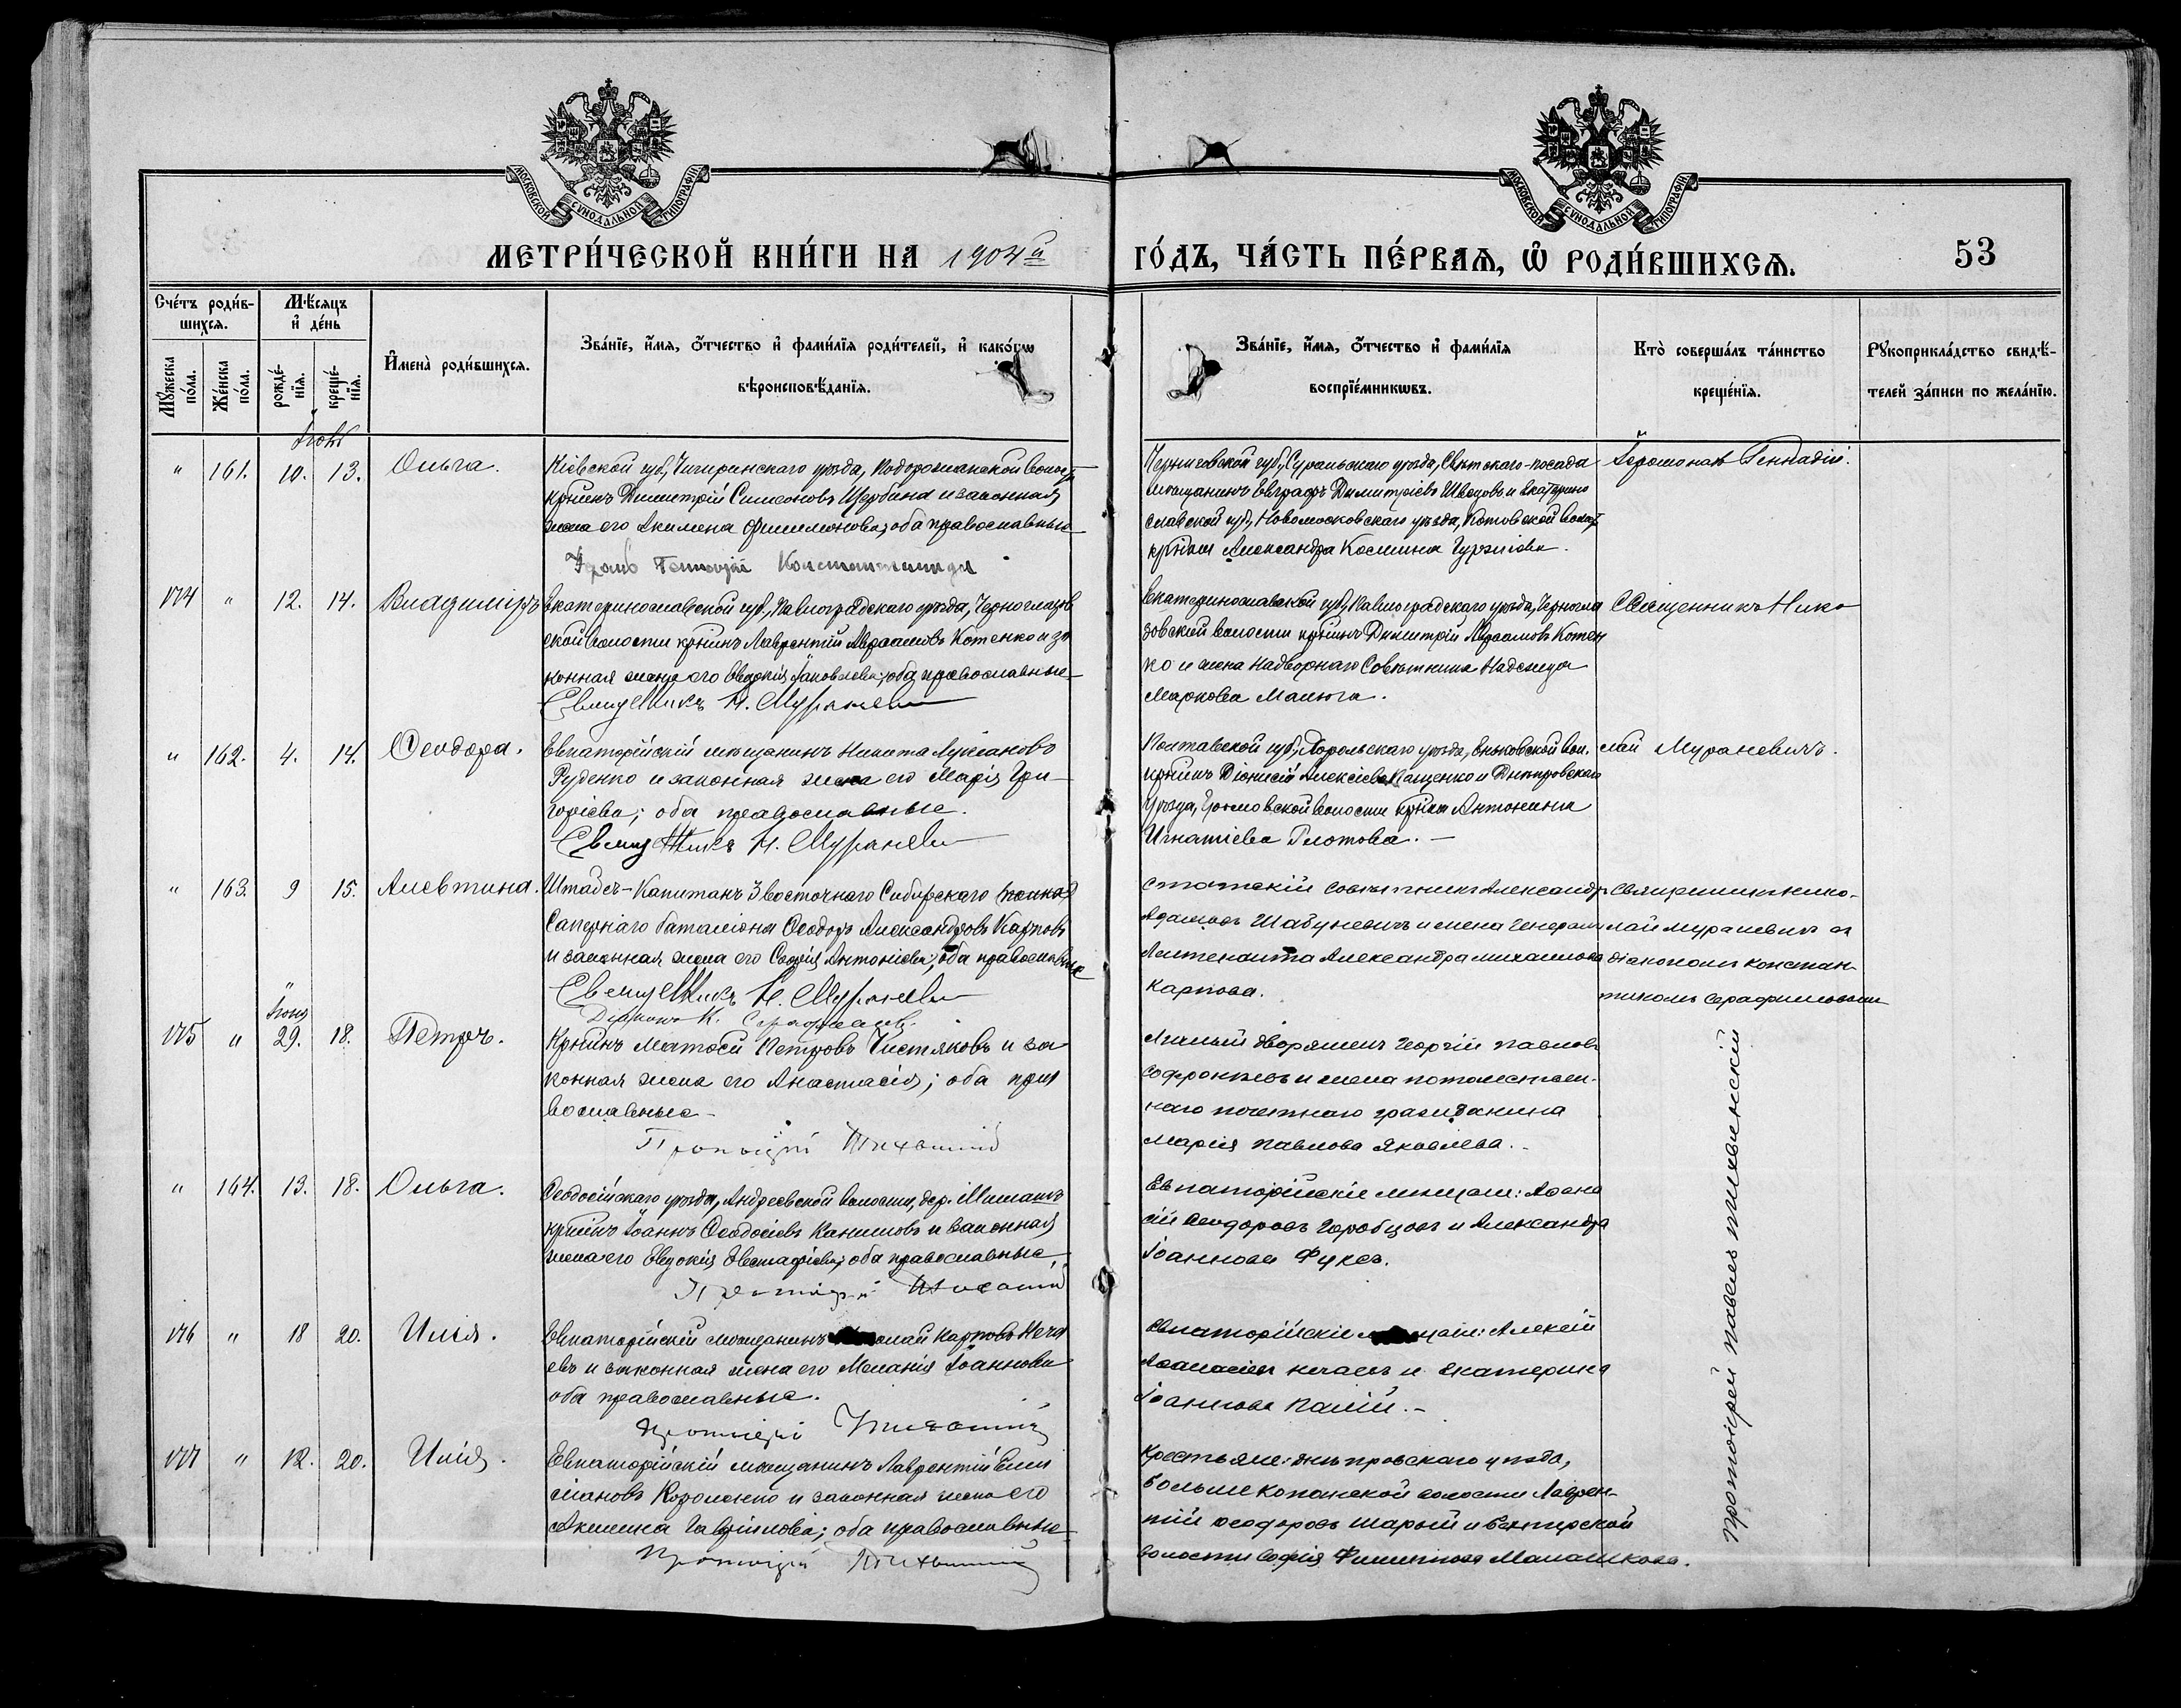 МОСКОВСКОЙ СУНОДАЛЬНОЙ ТИПОГРАФІИ
МОСКОВСКОЙ СУНОДАЛЬНОЙ ТИПОГРАФІИ
МЕТРИ́ЧЕСКОЙ КНИ́ГИ НА 1904й
ГО́ДЪ, ЧА́СТЬ ПЕ́РВАЯ, Ѡ҆ РОДИ́ВШИХСЯ.
53
Сче́тъ роди́в-
шихся.
Мѣ́сяцъ
и҆ де́нь
Мꙋ́жеска
по́ла.
Же́нска
по́ла.
рожде́-
нїя.
креще́-
нїя.
И҆мена̀ роди́вшихся.
Зва́нїе, и҆́мя, ѻ҆́тчество и҆ фами́лїя роди́телей, и҆ како́гѡ
вѣроисповѣ́данїя.
Зва́нїе, и҆́мя, ѻ҆́тчество и҆ фами́лїя
воспрїе́мникѡвъ.
Кто̀ соверша́лъ та́инство
креще́нїя.
Рꙋкоприкла́дство свидѣ́-
телей за́писи по жела́нїю.
" 161. 10. 13. Ольга.
Кіевской губ., Чигиринскаго уѣзда,
кр͞нинъ Димитрій Симеоновъ Щербина и законная
жена его Акилина Филимонова; оба православные
Черниговской губ., Суражскаго уѣзда, посада
мѣщанинъ Евграфъ Димитріевъ Швецовъ и Екатерино
славской губ., Новомосковскаго уѣзда, Котовской волос.
Александра Космина
Іеромонахъ Геннадій.
174 " 12. 14. Владиміръ
Екатеринославской губ., Павлоградскаго уѣзда, Черноглазов
ской волости кр͞нинъ Лаврентій Авраамовъ Котенко и за
конная жена его Евдокія Іаковлева; оба православные
Священникъ Н. Мураневи
Екатеринославской губ., Павлоградскаго уѣзда, Черногла
зовской волости кр͞нинъ Димитрій Авраамовъ Котен
ко и жена Надворнаго Совѣтника Надежда
Маркова Малюга.
Священникъ Нико
" 162. 4. 14. Ѳеодора.
Евпаторійскій мѣщанинъ Никита Лукіановъ
Руденко и законная жена его Марія Гри-
горіева; оба православные.
Священникъ Н. Мураневи
Полтавской губ., Хорольскаго уѣзда, вол.
кр͞нинъ Діонисій Алексіевъ Пащенко и Днѣпровскаго
уѣзда, волости Антонина
Игнатіева Глотова.
лай Мураневичъ.
" 163. 9 15. Алевтина.
Штабсъ-Капитанъ 3 восточнаго Сибирскаго (полка)
Сапернаго баталіона Ѳеодоръ Александровъ Карповъ
и законная жена его Софія Антоніева; оба православные
Священникъ Н. Мураневи
Діаконъ К.
Статскій совѣтникъ Александръ
Адамовъ Шабуневичъ и жена Генерал
Лейтенанта Александра Михаилова
Карпова.
Священникъ Нико-
лай Мураневич съ
діакономъ Констан-
тиномъ Серафимовымъ
Іюня
175 " 29. 18. Петръ.
Кр͞нинъ Матѳей Петровъ Чистяковъ и за
конная жена его Анастасія; оба пра
вославные
Протоіерей Тихвинскій
Личный дворянинъ Георгій Павловъ
Софроніевъ и жена потомствен-
наго почетнаго гражданина
Марія Павлова Яковлева.
Протоіерей Павелъ Тихвинскій
" 164. 13. 18. Ольга.
Ѳеодосійскаго уѣзда, Андреевской волости, дер.
кр͞нинъ Іоаннъ Ѳеодосіевъ Канишовъ и законная
жена его Евдокія Евстафіева; оба православные
Протоіерей Тихвинскій
Евпаторійскіе мѣщане: Аѳана
сій Ѳеодоровъ Горобцовъ и Александра
Іоаннова Фуксъ.
176 " 18 20. Илія.
Евпаторійскій мѣщанинъ Карповъ Неча
евъ и законная жена его Меланія Іоаннова
оба православные.
Протоіерей Тихвинскій
Евпаторійскіе мѣщане: Алексій
Аѳанасіевъ Нечаевъ и Екатерина
Іоаннова Палій.
177 " 12. 20. Илія.
Евпаторійскій мѣщанинъ Лаврентій
Короленко и законная жена его
Акилина Гавріилова; оба православные
Протоіерей Тихвинскій
Крестьяне: Днѣпровскаго уѣзда,
Больше Копанской волости Лаврен-
тій Ѳеодоровъ Шарый и
волости Софія Филиппова Малашкова.